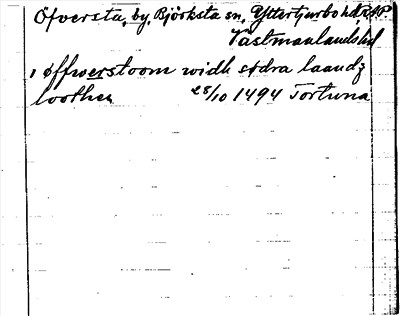 Öfversta, by, Björksta sn, Yttertjurbo hd, RAP
Västmanlands län
i øffwerstoom widh sødra laandz
loothen 28/10 1494 Tortuna